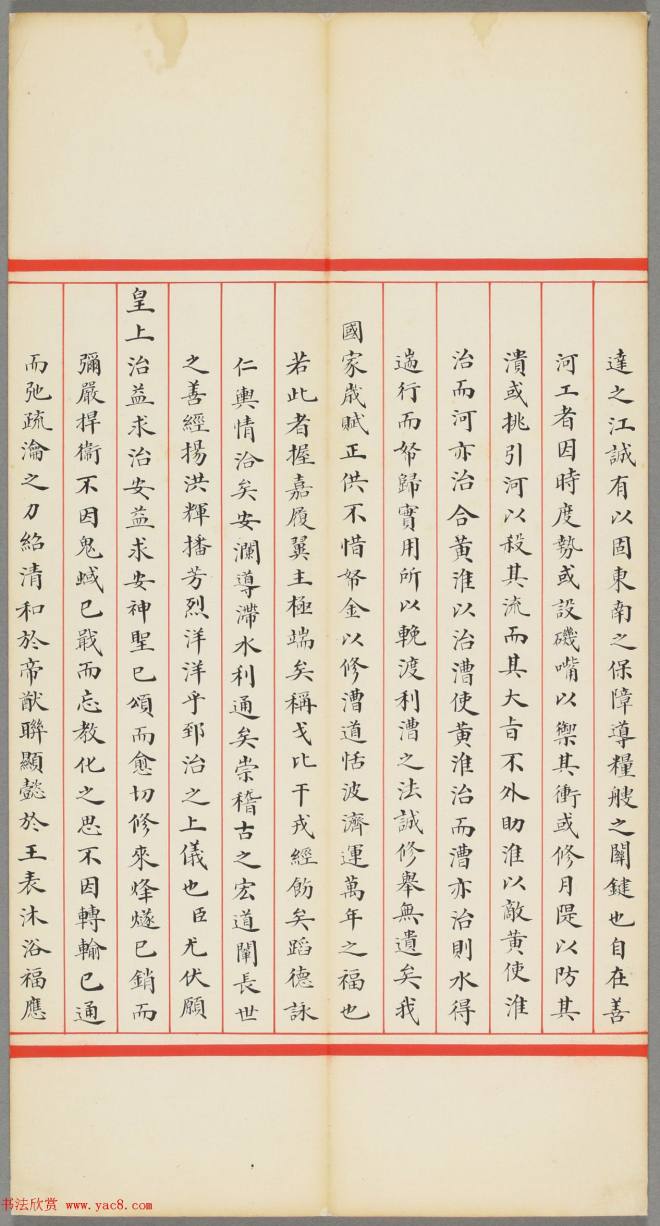 達之江誠有以固東南之保障導糧艘之關鍵也自在善
河工者因時度勢或設磯嘴以禦其衝或修月隄以防其
潰或挑引河以殺其流而其大旨不外助淮以敵黃使淮
治而河亦治合黃淮以治漕使黃淮治而漕亦治則水得
遄行而帑歸實用所以輓渡利漕之法誠修舉無遺矣我
國家歲賦正供不惜帑金以修漕道恬波濟運萬年之福也
若此者握嘉履翼主極端矣稱戈比干戎經飭矣蹈德詠
仁輿情洽矣安瀾導滯水利通矣崇稽古之宏道闡長世
之善經揚洪輝播芳烈洋洋乎郅治之上儀也臣尤伏願
皇上治益求治安益求安神聖已頌而愈切修來烽燧已銷而
彌嚴捍衞不因鬼蜮已戢而忘教化之思不因轉輸已通
而弛疏瀹之力紹清和於帝猷聯顯懿於王表沐浴福應
书法欣赏 www.yac8.com